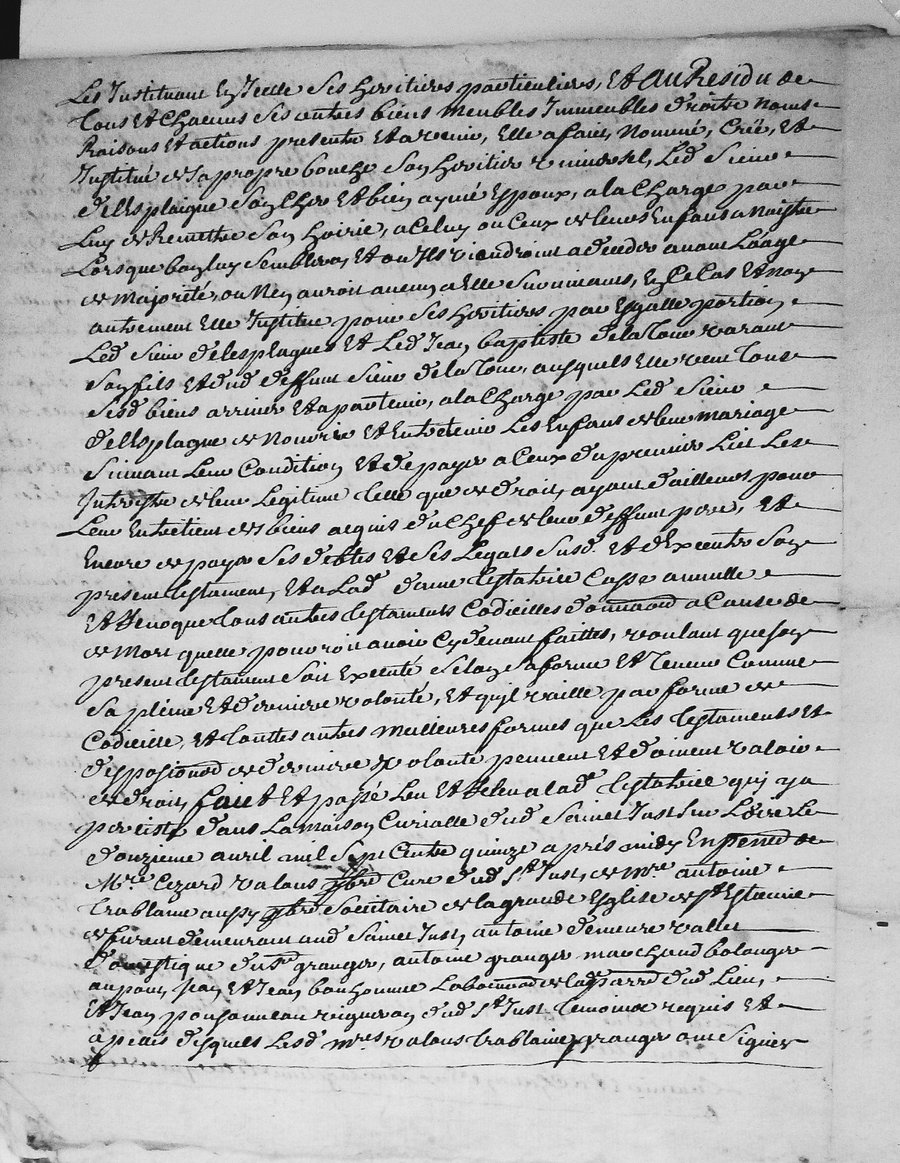 Les Instituant En Icelle ses heritiers particuliers, Et Au Residu de
tous Et Chacuns ses autres biens Meubles Immeubles droits Noms
Raisons Et actions presents Et avenir, Elle a faict, Nommé, Créé, Et
Institué de sa propre bouche son heritier universel, Led. Sieur
delesplaigne son Cher Et bien aymé Espoux, a la Charge par
Luy de Remettre son hoirie, a Celuy ou Ceux de leurs Enfans a Naistre
Lorsque bon luy semblera, Et ou Ils viendroint a deceder avant Laage
de Majorité, ou Ney auroit aucun a Elle survivants, En Ce Cas Et Non
autrement Elle Institue pour ses heritiers par Esgalle portion
Led. Sieur delesplagnes Et Led. Jean baptiste delatour varant
son fils Et dud. deffunt Sieur delatour, ausquels Elle veut tous
sesd. biens arriver Et apartenir, a la Charge par Led. Sieur
dellesplagne de Nourrir Et Entretenir Les Enfans de leur mariage
suivant Leur Condition Et de payer a Ceux du premier Lict Les
Interests de leur Legitime telle que de droit, ayant d'ailleurs pour
Leur Entretient des biens acquis du Chef de leur deffunt pere, Et
Encore de payer ses debtes Et ses Legats susd. Et d'Executer son
present testament, Et a Lad. dame testatrice Casse annulle
Et Revoque tous autres testaments Codicilles donnaons a Cause de
de Mort quelle pourroit avoir Cy devant faittes, voulant que son
present testament soit Executé selon sa forme Et Teneur Comme
sa pleine Et derniere volonté, Et quil vaille par forme de
Codicille, Et touttes autres meilleures formes que Les testaments Et
disposiond de derniere volonté peuvent Et doivent valoir
de droit, faict Et passé Leu Et Releu a lad. testatrice qui y a
percisté dans La maison Curialle dud. Sainct Just sur Loire Le
douzieme avril mil sept Cents quinze apres midy En presence de
Mre Cezard valous pbre Curé dud. St. Just, de mre antoine
trablaine aussy pbre Societaire de la grande Eglise de St Estienne
de furent demeurant aud. Sainct Just, antoine demeure vallet
domestique du Sr granger, antoine granger marchand bolonger
au pont, Jean Et Jean bonhomme Laboureurs de lad. parr. dud. Lieu,
Et Jean vigneron dud. St Just temoins requis Et
apelés desquels Lesd. mres valous trablaine, granger ont Signés